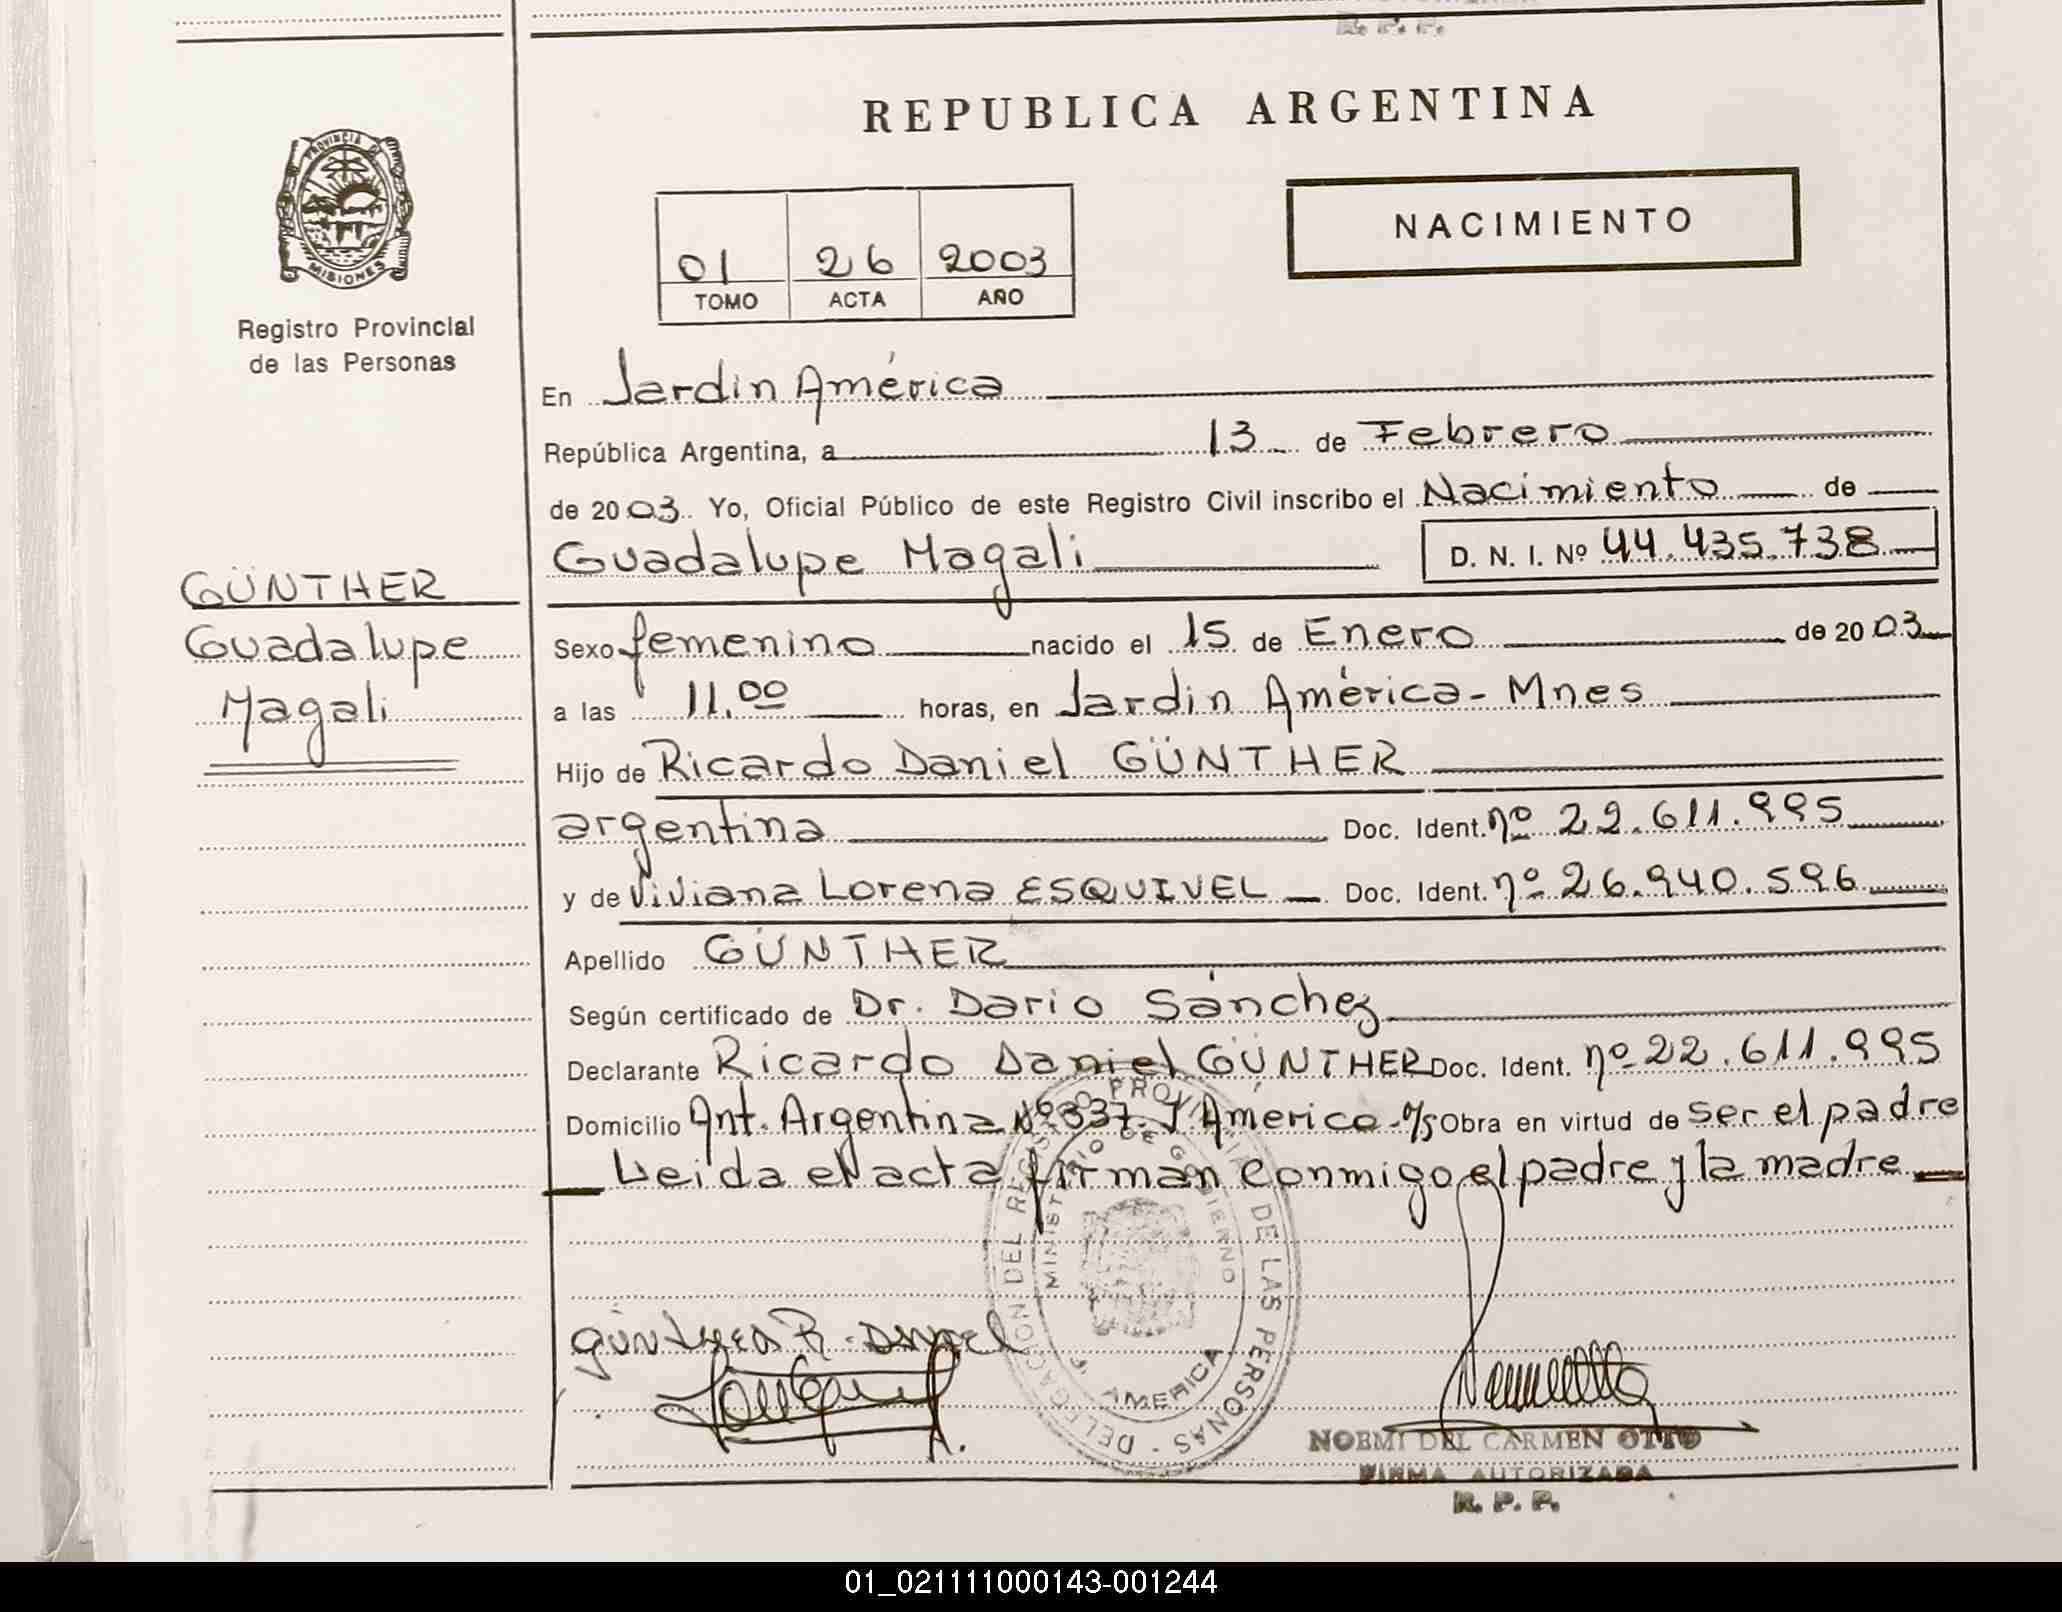 R. P. P.
REPUBLICA ARGENTINA
PROVINCIA DE
MISIONES
Registro Provincial
de las Personas
NACIMIENTO
01 26 2003
TOMO ACTA AÑO
En Jardin América
República Argentina, a 13 de Febrero
de 2003. Yo, Oficial Público de este Registro Civil inscribo el Nacimiento de
Guadalupe Magali D. N. I. Nº 44.435.738
GÜNTHER
Guadalupe
Magali
Sexo femenino nacido el 15 de Enero de 2003
a las 11,00 horas, en Jardin América - Mnes
Hijo de Ricardo Daniel GÜNTHER
argentina Doc. Ident. nº 22.611.995
y de Viviana Lorena ESQUIVEL Doc. Ident. nº 26.940.596
Apellido GÜNTHER
Según certificado de Dr. Dario Sánchez
Declarante Ricardo Daniel GÜNTHER Doc. Ident. nº 22.611.995
Domicilio Ant. Argentina Nº 337. J. America - Obra en virtud de ser el padre
Leida el acta firman conmigo el padre y la madre
DELEGACION DEL REGISTRO PROVINCIAL DE LAS PERSONAS
MINISTERIO DE GOBIERNO
J. AMERICA
GÜNTHER R. DANIEL
NOEMI DEL CARMEN OTTO
FIRMA AUTORIZADA
R. P. P.
01_021111000143-001244